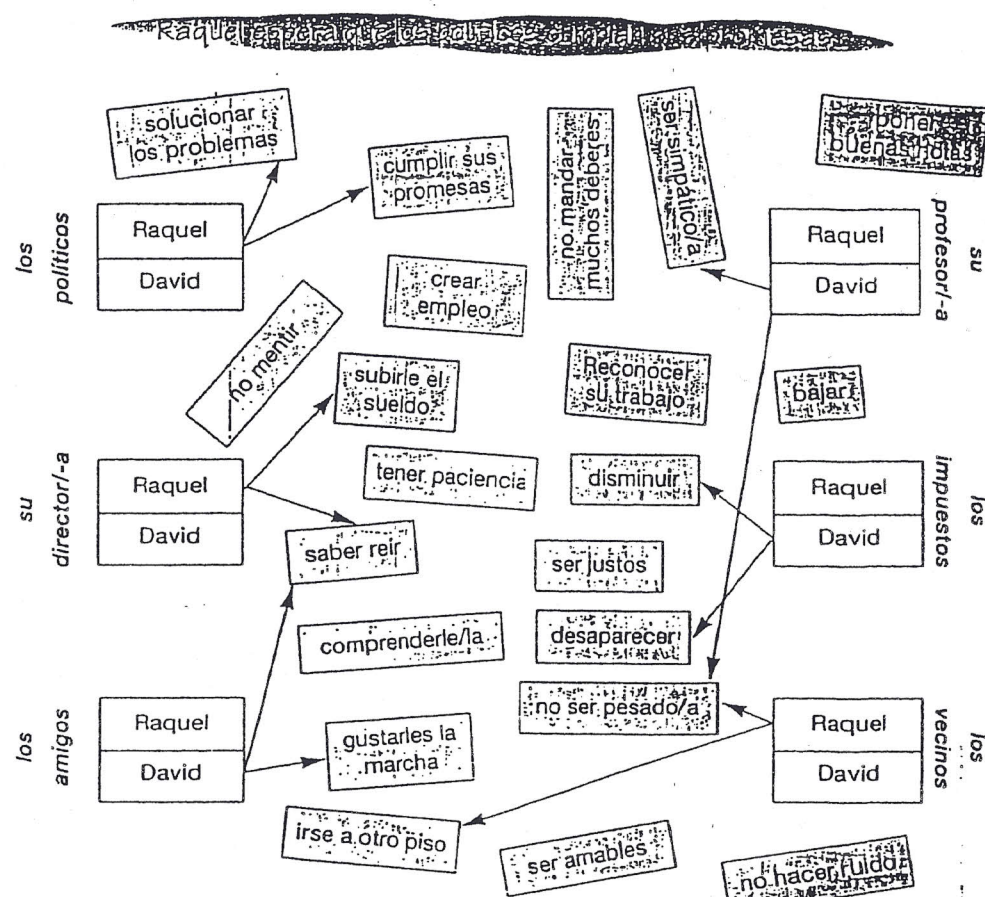 Raquel espera que los políticos cumplan sus promesas
solucionar
los problemas
cumplir sus
promesas
no mandar
muchos deberes
ser simpático/a
poner
buenas notas
los
políticos
Raquel
David
crear
empleo
su
profesor/-a
Raquel
David
no mentir
subirle el
sueldo
Reconocer
su trabajo
bajar
su
director/-a
Raquel
David
tener paciencia
disminuir
los
impuestos
Raquel
David
saber reir
ser justos
comprenderle/la
desaparecer
no ser pesado/a
los
amigos
Raquel
David
gustarles la
marcha
los
vecinos
Raquel
David
irse a otro piso
ser amables
no hacer ruido